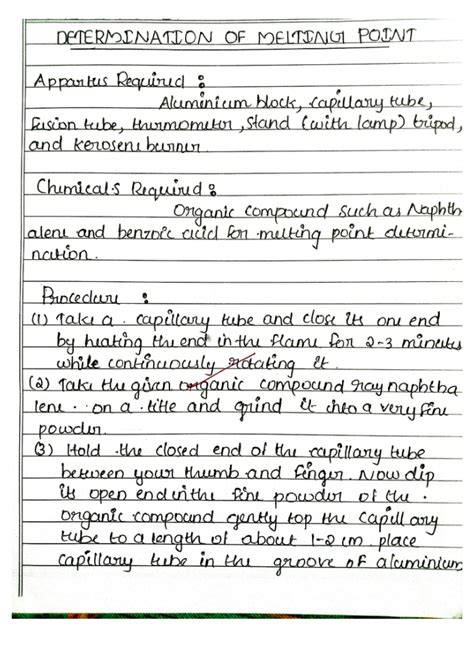 DETERMINATION OF MELTING POINT
Appartus Required :
Aluminium block, capillary tube,
fusion tube, thermometer, stand (with lamp) tripod,
and kerosene burner
Chemicals Required :
Organic compound such as Naphth
alene and benzoic acid for melting point determi-
nation.
Procedure :
(1) Take a capillary tube and close its one end
by heating the end in the flame for 2-3 minutes
while continuously rotating it.
(2) Take the given organic compound say naphtha
lene on a tile and grind it into a very fine
powder.
(3) Hold the closed end of the capillary tube
between your thumb and finger. Now dip
its open end in the fine powder of the
organic compound gently top the capillary
tube to a length of about 1-2 cm. place
capillary tube in the groove of aluminium